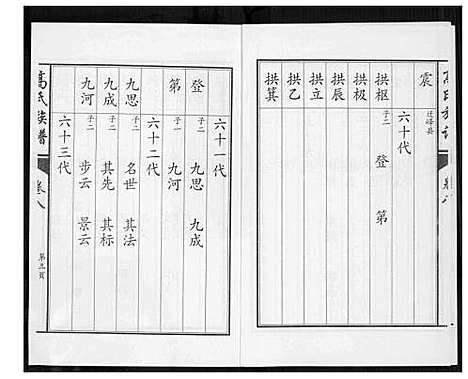 震
迁峄县
六十代
拱枢 子二 登 第
拱极
拱辰
拱立
拱乙
拱箕
六十一代
登 子二 九思 九成
第 子一 九河
六十二代
九思 子二 名世 其法
九成 子二 其先 其标
九河 子二 步云 景云
六十三代
高氏族谱
卷八
第五页